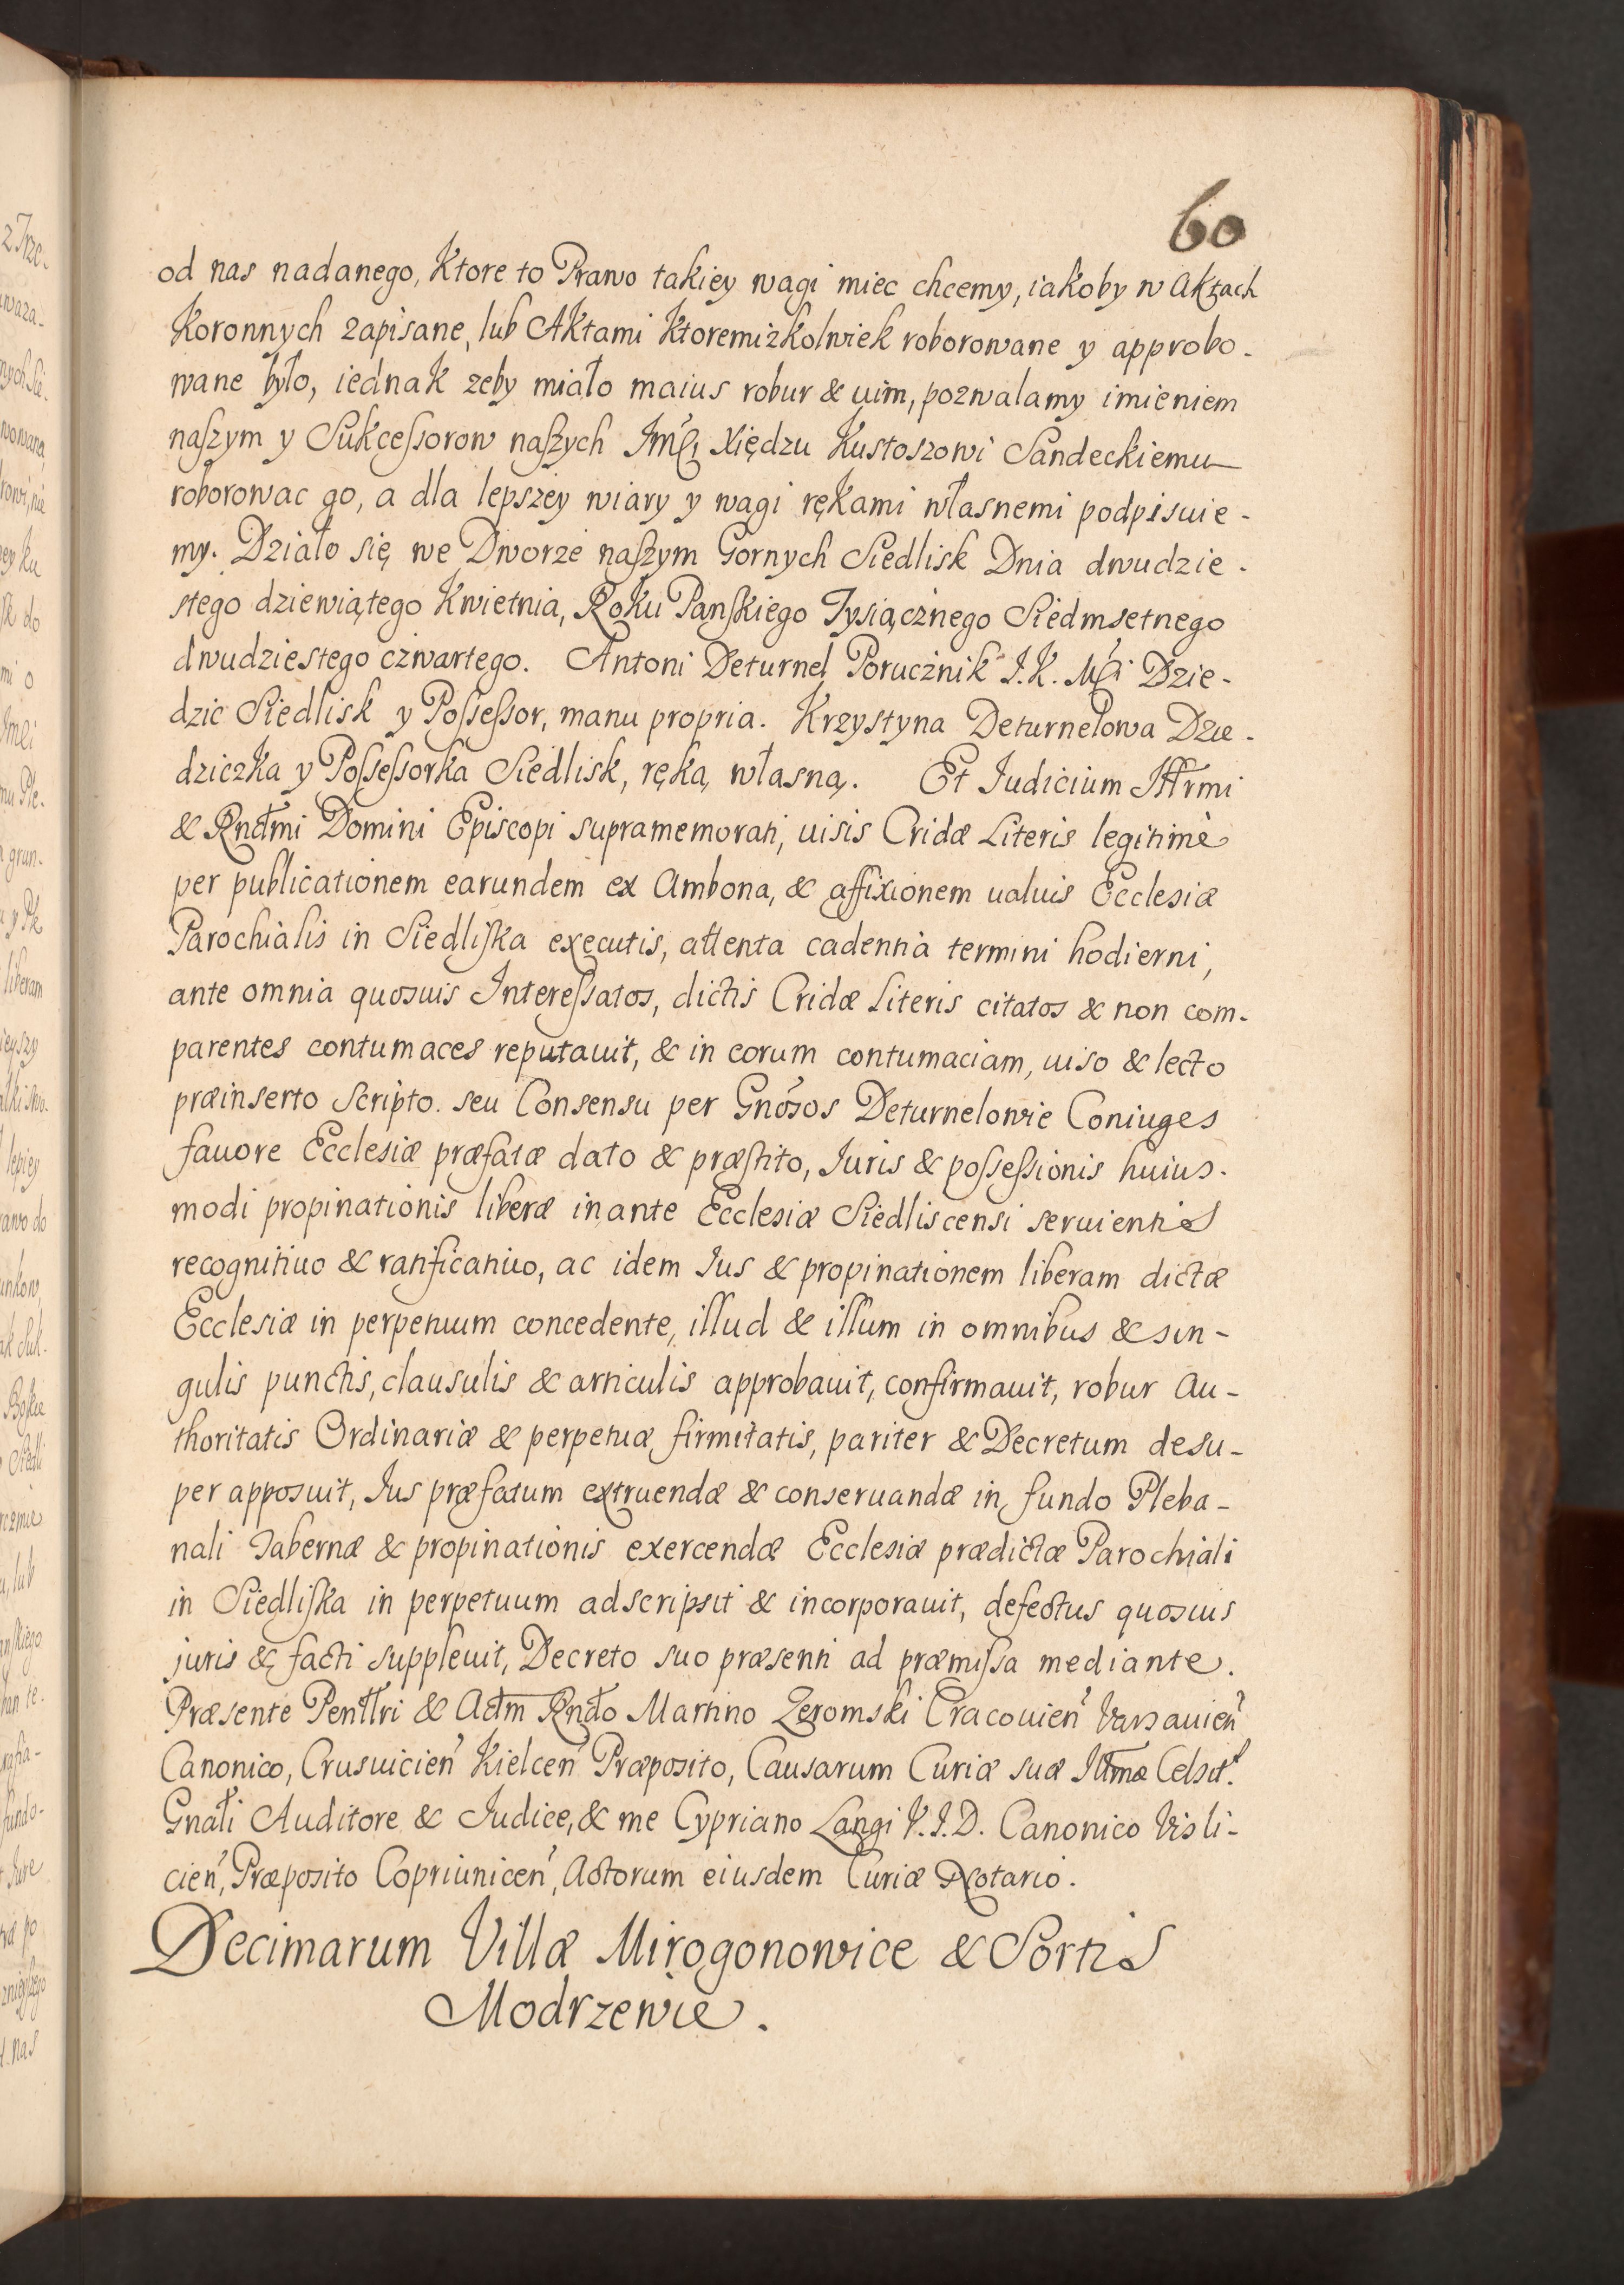 60
od nas nadanego, Ktore to Prawo takiey wagi miec chcemy, iakoby w Aktach
Koronnych zapisane, lub Aktami Ktoremizkolwiek roborowane y approbo-
wane było, iednak zeby miało maius robur & uim, pozwalamy imieniem
naszym y Sukcessorow naszych Jmći Xiędzu Kustoszowi Sandeckiemu
roborowac go, a dla lepszey wiary y wagi rękami własnemi podpisuie-
my. Działo się we Dworze naszym Gornych Siedlisk Dnia dwudzie-
stego dziewiątego Kwietnia, Roku Panskiego Tysiącznego Siedmsetnego
dwudziestego czwartego. Antoni Deturnel Porucznik J.K. Mći Dzie-
dzic Siedlisk y Possessor, manu propria. Krzystyna Deturnelowa Dzie-
dziczka y Possessorka Siedlisk, ręką własną. Et Judicium Illrmi
& Rndmi Domini Episcopi supramemorati, uisis Cridæ Literis legitimè
per publicationem earundem ex Ambona, & affixionem ualuis Ecclesiæ
Parochialis in Siedliska executis, attenta cadentia termini hodierni,
ante omnia quosuis Interessatos, dictis Cridæ Literis citatos & non com-
parentes contumaces reputauit, & in eorum contumaciam, uiso & lecto
præinserto Scripto. seu Consensu per Gnosos Deturnelowie Coniuges
fauore Ecclesiæ præfatæ dato & præstito, Juris & possessionis huius-
modi propinationis liberæ in ante Ecclesiæ Siedliscensi seruientis
recognitiuo & ratificatiuo, ac idem Jus & propinationem liberam dictæ
Ecclesiæ in perpetuum concedente, illud & illum in omnibus & sin-
gulis punctis, clausulis & articulis approbauit, confirmauit, robur Au-
thoritatis Ordinariæ & perpetuæ firmitatis, pariter & Decretum desu-
per apposuit, Jus præfatum extruendæ & conseruandæ in fundo Pleba-
nali Tabernæ & propinationis exercendæ Ecclesiæ prædictæ Parochiali
in Siedliska in perpetuum adscripsit & incorporauit, defectus quosuis
juris & facti suppleuit, Decreto suo præsenti ad præmissa mediante.
Præsente Penttri & Adm Rndo Martino Zeromski Cracouien Varsauien
Canonico, Crusuicien Kielcen Præposito, Causarum Curiæ suæ Illmæ Celsit.
Gnali Auditore & Judice, & me Cypriano Langi V.J.D. Canonico Visli-
cien, Præposito Copriunicen, Actorum eiusdem Curiæ Notario.
Decimarum Villæ Mirogonowice & Sortis
Modrzewie.